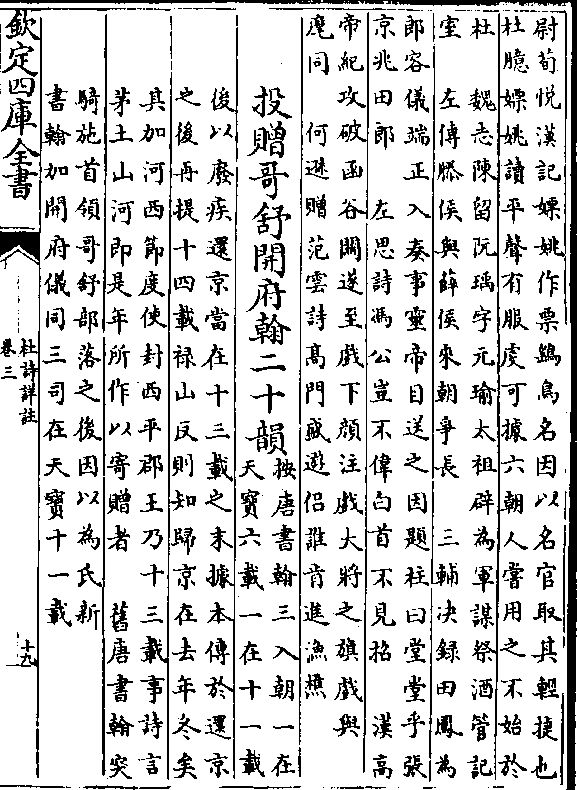 尉荀悅漢記嫖姚作票鷂鳥名因以名官取其輕捷也
杜臆嫖姚讀平聲有服虔可據六朝人嘗用之不始於
杜　魏志陳留阮瑀字元瑜太祖辟為軍謀祭酒管記
室　左傳滕侯與薛侯來朝爭長　三輔決録田鳳為
郎容儀端正入奏事靈帝目送之因題柱曰堂堂乎張
京兆田郎　左思詩馮公豈不偉白首不見招　漢高
帝紀攻破函谷關遂至戲下顔注戲大將之旗戲與
麾同　何遜贈范雲詩髙門盛遊侣誰肯進漁樵
投贈哥舒開府翰二十韻
按唐書翰三入朝一在
天寶六載一在十一載
後以廢疾還京當在十三載之末據本傳於還京
之後再提十四載禄山反則知歸京在去年冬矣
其加河西節度使封西平郡王乃十三載事詩言
茅土山河即是年所作以寄贈者　舊唐書翰突
騎施首領哥舒部落之後因以為氏新
書翰加開府儀同三司在天寶十一載
欽定四庫全書
杜詩詳註
卷三
十九